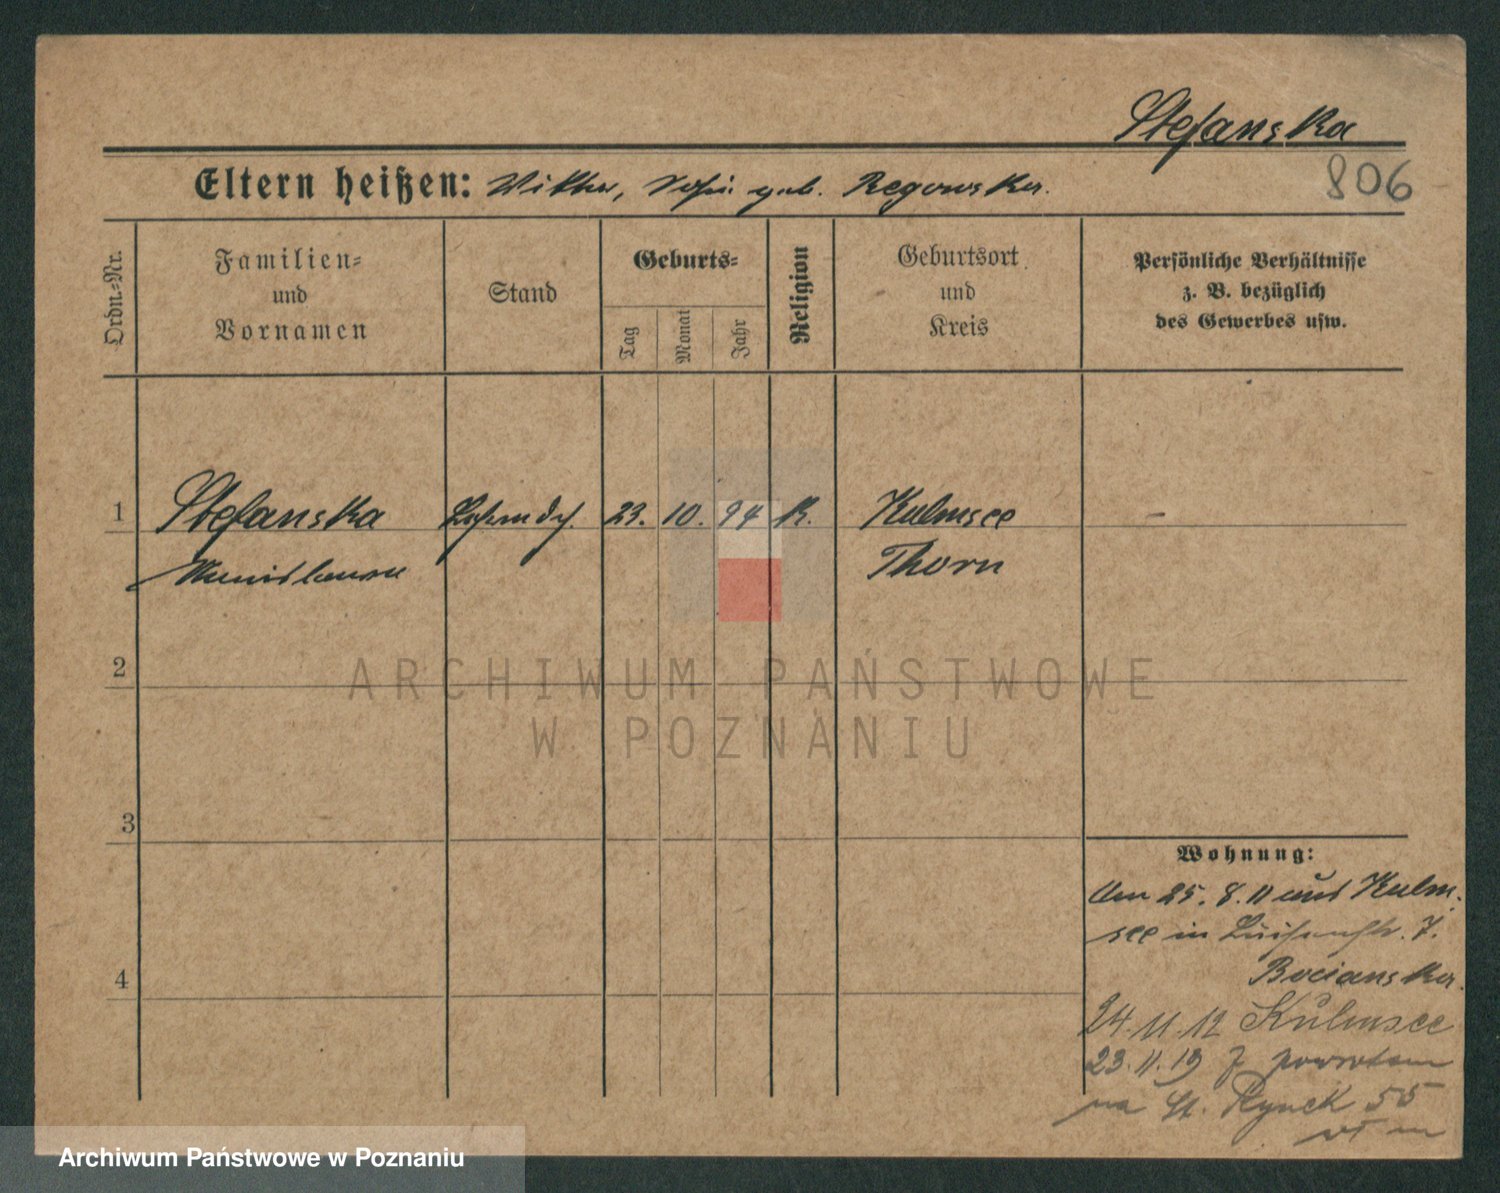 Stefanska
806
Eltern heißen: Wiktor, Sofie geb. Regowska.
Ordn.-Nr.
Familien-
und
Vornamen
Stand
Geburts-
Tag
Monat
Jahr
Religion
Geburtsort
und
Kreis
Persönliche Verhältnisse
z. B. bezüglich
des Gewerbes usw.
1 Stefanska 23. 10. 94 K. Kulmsee -
Thorn
2
3
4
Wohnung:
Am 25. 8. 11 aus Kulm-
see in Luisenstr. 7.
Bocianska.
24.11.12 Kulmsee
23.11.19 z powrotem
na St. Rynek 55
ARCHIWUM PAŃSTWOWE
W POZNANIU
Archiwum Państwowe w Poznaniu